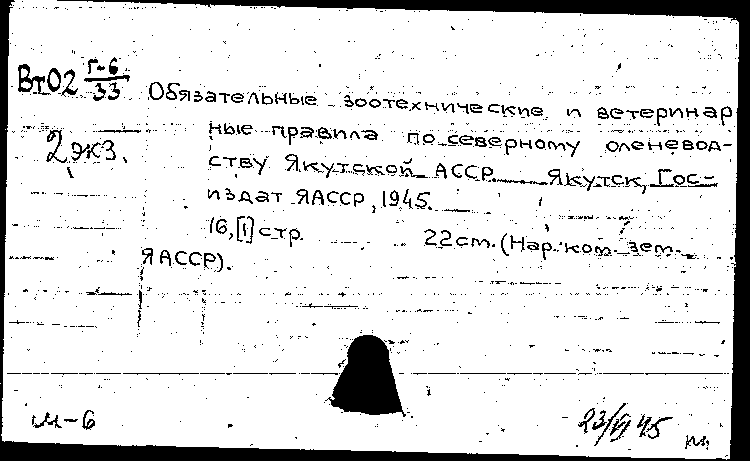 ВтО2 Г-6/33
Обязательные зоотехнические и ветеринар
2 экз.
ные правила по северному оленевод-
ству Якутской АССР. Якутск, Гос-
издат ЯАССР, 1945.
16, [1] стр. 22 cm. (Нар. ком. зем.
ЯАССР).
м-6
23/VI 45